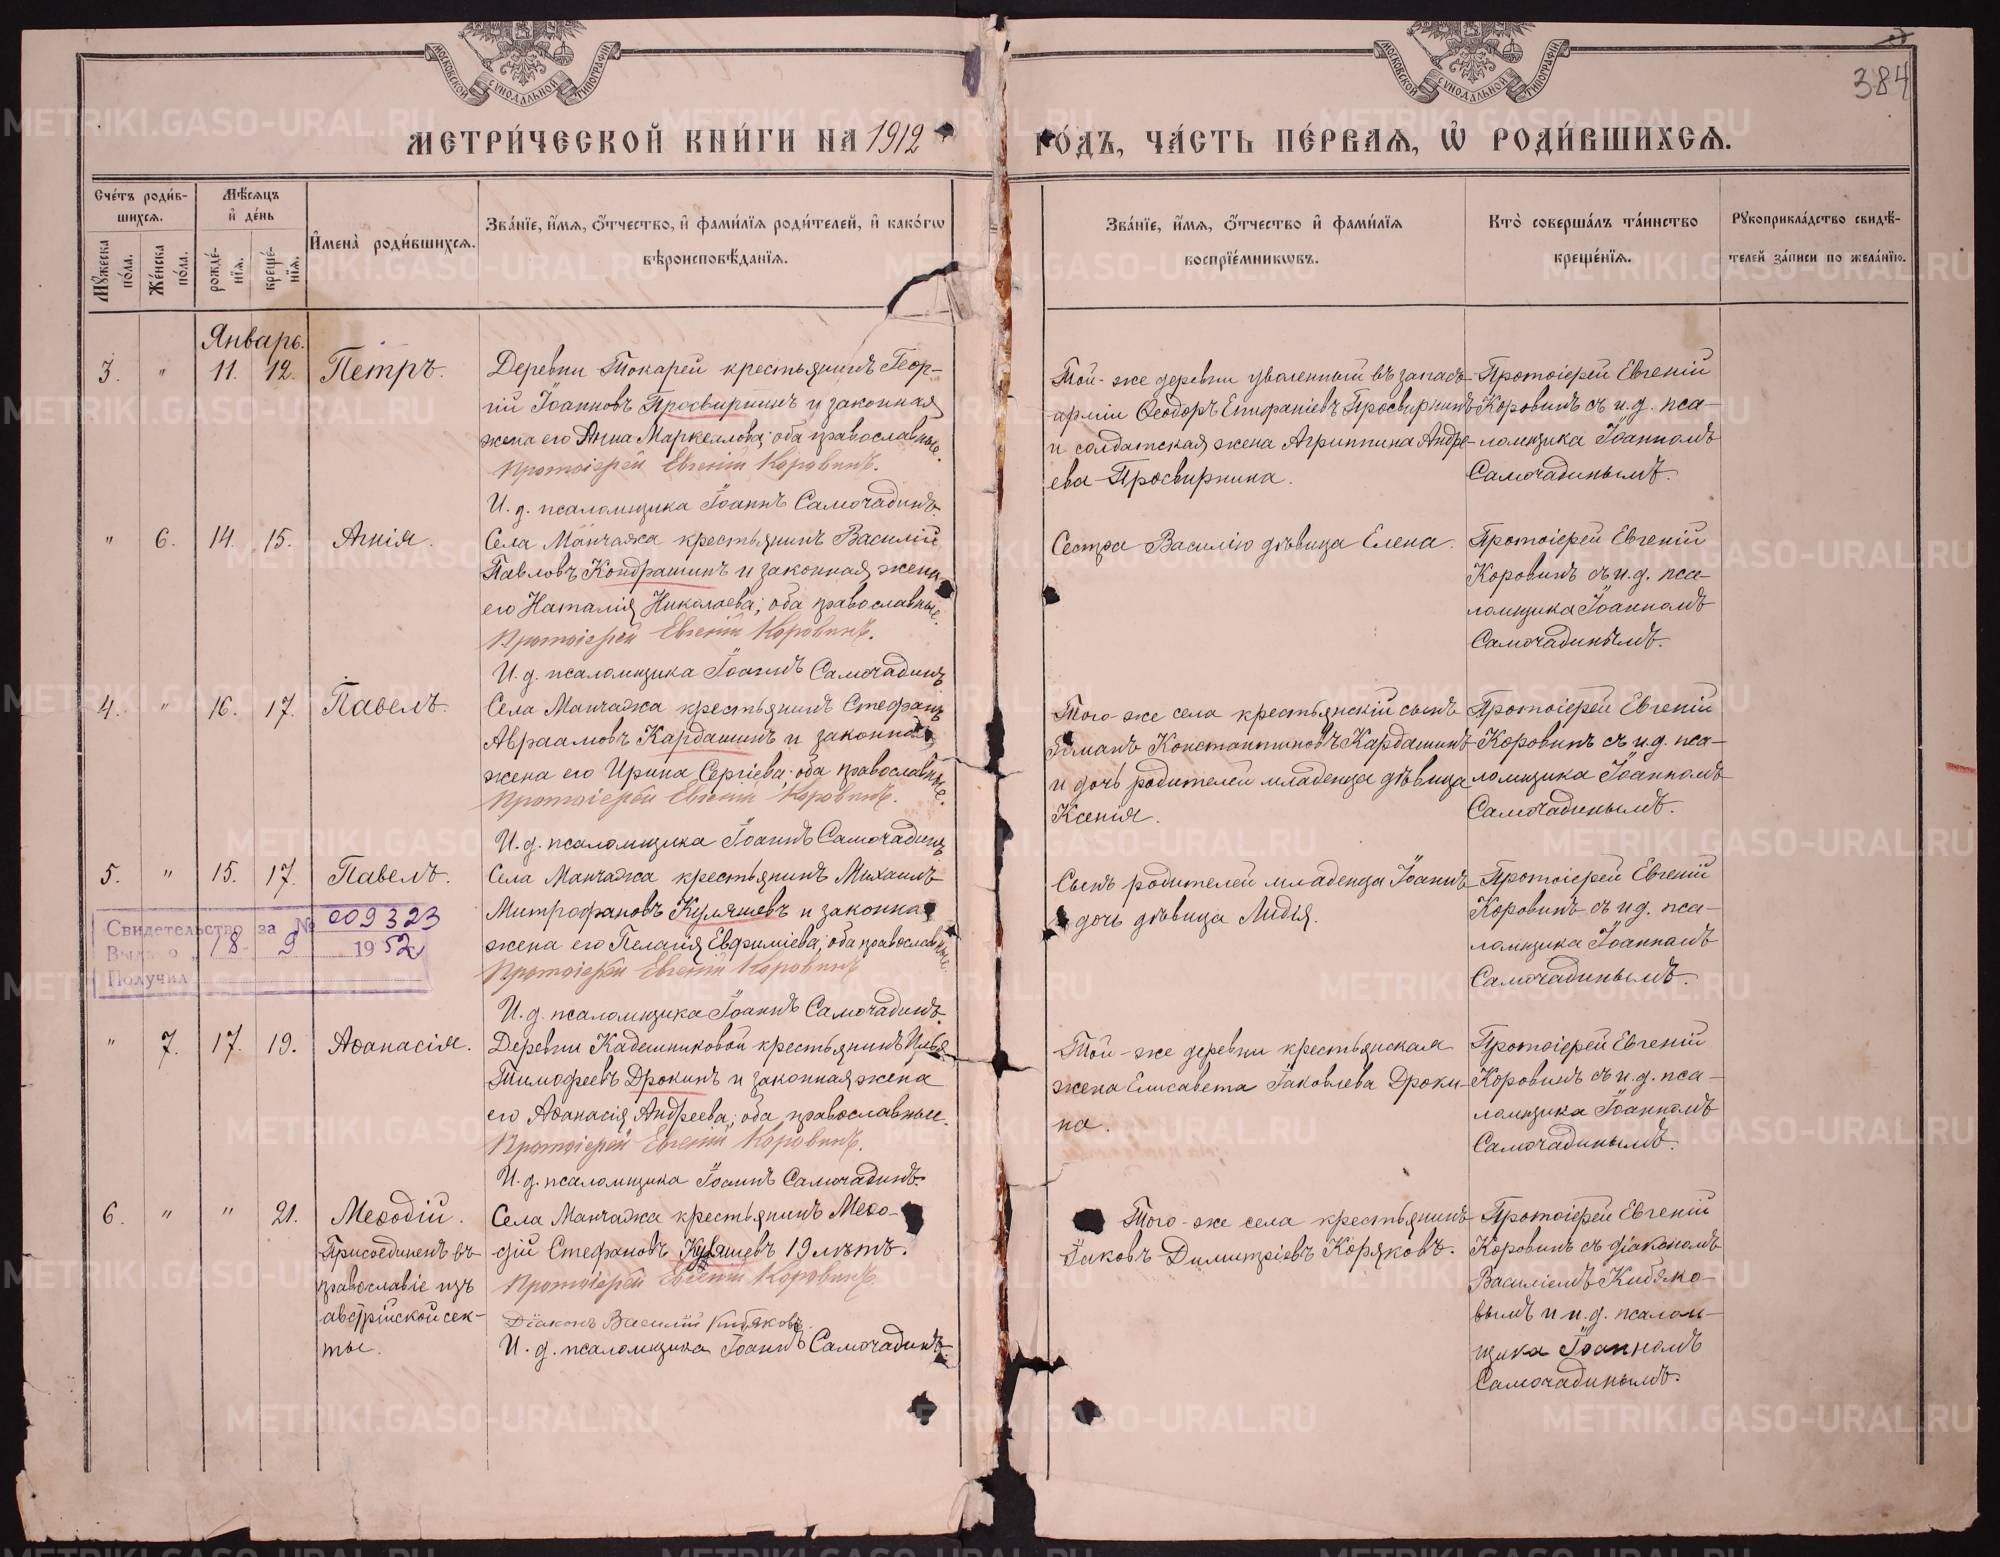 МОСКОВСКОЙ СѴНОДАЛЬНОЙ ТИПОГРАФІИ
МОСКОВСКОЙ СѴНОДАЛЬНОЙ ТИПОГРАФІИ
384
МЕТРИ́ЧЕСКОЙ КНИ́ГИ НА 1912
ГО́ДЪ, ЧА́СТЬ ПЕ́РВАѦ, Ѡ҆ РОДИ́ВШИХСѦ.
Сче́тъ роди́в-
шихсѧ.
Мꙋ́жеска по́ла.
Же́нска по́ла.
Мѣ́сѧцъ и҆ де́нь
рожде́-нїѧ.
креще́-нїѧ.
И҆мена̀ роди́вшихсѧ.
Зва́нїе, и҆́мѧ, ѻ҆́тчество, и҆ фами́лїѧ роди́телей, и҆ како́гѡ
вѣроисповѣ́данїѧ.
Зва́нїе, и҆́мѧ, ѻ҆́тчество и҆ фами́лїѧ
воспрїе́мникѡвъ.
Кто̀ соверша́лъ та́инство
креще́нїѧ.
Рꙋкоприкла́дство свидѣ́-
телей за́писи по жела́нїю.
Январь.
3. " 11. 12. Петръ.
Деревни Токарей крестьянинъ Геор-
гій Іоанновъ Просвирнинъ и законная
жена его Анна Маркеллова; оба православные.
Протоіерей Евгеній Коровинъ.
И. д. псаломщика Іоаннъ Самочадинъ.
Той-же деревни уволенный въ запасъ
арміи Ѳеодоръ Епифаніевъ Просвирнинъ
и солдатская жена Агриппина Андре-
ева Просвирнина.
Протоіерей Евгеній
Коровинъ съ и.д. пса-
ломщика Іоанномъ
Самочадинымъ.
" 6. 14. 15. Агнія.
Села Манчажа крестьянинъ Василій
Павловъ Кондрашинъ и законная жена
его Наталія Николаева; оба православные.
Протоіерей Евгеній Коровинъ.
И. д. псаломщика Іоаннъ Самочадинъ
Сестра Василію дѣвица Елена.
Протоіерей Евгеній
Коровинъ съ и.д. пса-
ломщика Іоанномъ
Самочадинымъ.
4. " 16. 17. Павелъ.
Села Манчажа крестьянинъ Стефанъ
Авраамовъ Кардашинъ и законная
жена его Ирина Сергіева; оба православные.
Протоіерей Евгеній Коровинъ.
И. д. псаломщика Іоаннъ Самочадинъ
Того-же села крестьянскій сынъ
Романъ Константиновъ Кардашинъ
и дочь родителей младенца дѣвица
Ксенія.
Протоіерей Евгеній
Коровинъ съ и.д. пса-
ломщика Іоанномъ
Самочадинымъ.
5. " 15. 17. Павелъ.
Села Манчажа крестьянинъ Михаилъ
Митрофановъ Куляшевъ и законная
жена его Пелагія Евфиміева; оба православные.
Протоіерей Евгеній Коровинъ
И. д. псаломщика Іоаннъ Самочадинъ.
Сынъ родителей младенца Іоаннъ
и дочь дѣвица Лидія.
Протоіерей Евгеній
Коровинъ съ и.д. пса-
ломщика Іоанномъ
Самочадинымъ.
Свидетельство за № 009323
Выдано 18 9 1952
Получил
" 7. 17. 19. Аѳанасія.
Деревни Кадешниковой крестьянинъ Илья
Тимофеевъ Дрокинъ и законная жена
его Аѳанасія Андреева; оба православные.
Протоіерей Евгеній Коровинъ.
И. д. псаломщика Іоаннъ Самочадинъ.
Той-же деревни крестьянская
жена Елисавета Іаковлева Дроки-
на.
Протоіерей Евгеній
Коровинъ съ и.д. пса-
ломщика Іоанномъ
Самочадинымъ.
6. " " 21. Меѳодій.
Присоединенъ въ
православіе изъ
австрійской сек-
ты.
Села Манчажа крестьянинъ Меѳо-
дій Стефановъ Куляшевъ 19 лѣтъ.
Протоіерей Евгеній Коровинъ
Діаконъ Василій Кибяковъ
И. д. псаломщика Іоаннъ Самочадинъ.
Того-же села крестьянинъ
Іаковъ Димитріевъ Коряковъ.
Протоіерей Евгеній
Коровинъ съ діакономъ
Василіемъ Кибяко-
вымъ и и.д. псалом-
щика Іоанномъ
Самочадинымъ.
METRIKI.GASO-URAL.RU